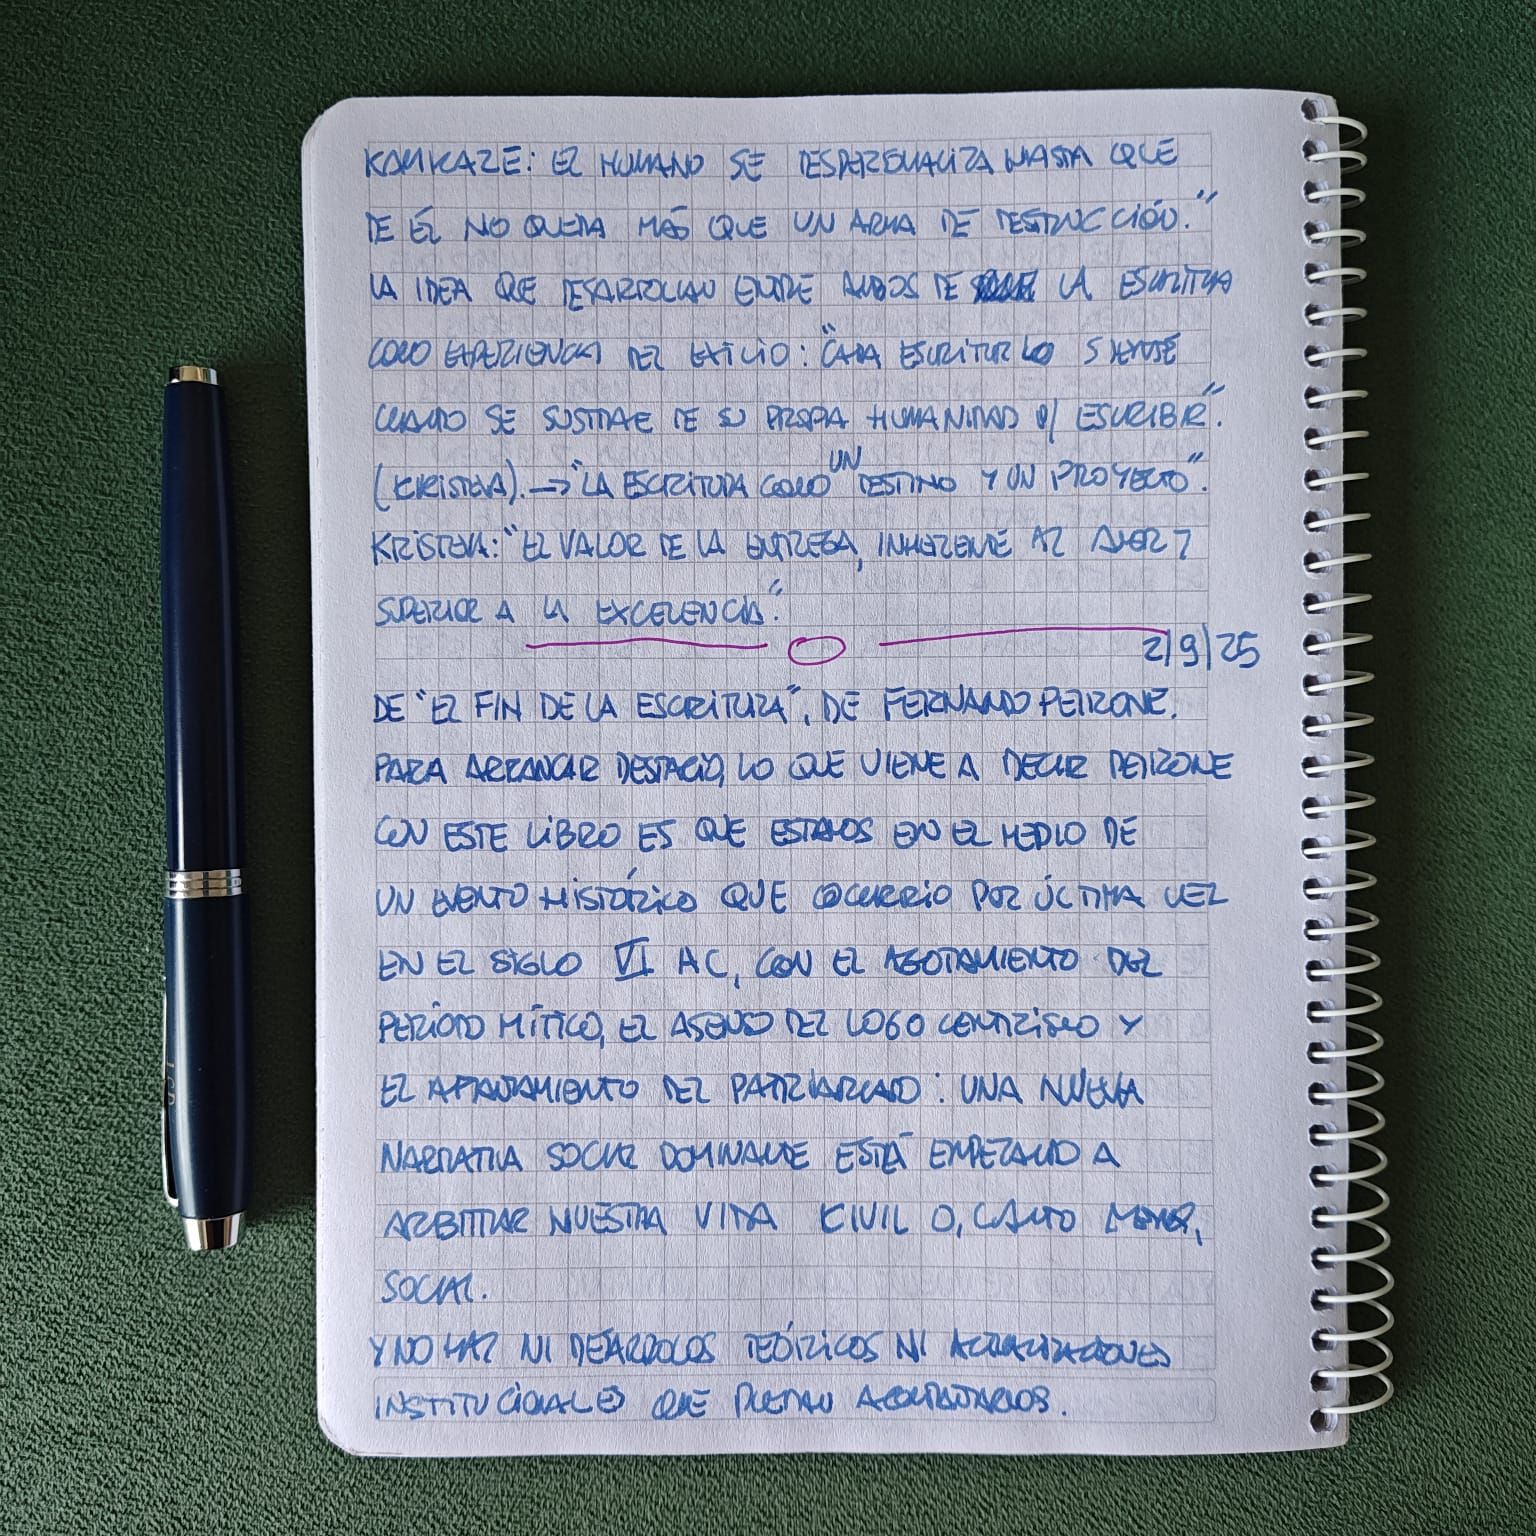 KAMIKAZE: EL HUMANO SE DESPERSONALIZA HASTA QUE
DE ÉL NO QUEDA MÁS QUE UN ARMA DE DESTRUCCIÓN."
LA IDEA QUE DESARROLLAN ENTRE AMBOS DE LA ESCRITURA
COMO EXPERIENCIA DEL EXILIO: "CADA ESCRITOR LO SIENTE
CUANDO SE SUSTRAE DE SU PROPIA HUMANIDAD P/ ESCRIBIR".
(KRISTEVA). → "LA ESCRITURA COMO UN DESTINO Y UN PROYECTO".
KRISTEVA: "EL VALOR DE LA ENTREGA, INHERENTE AL Y
SUPERIOR A LA EXCELENCIA".
2/9/25
DE "EL FIN DE LA ESCRITURA", DE FERNANDO PEIRONE.
PARA ARRANCAR DESPACIO, LO QUE VIENE A DECIR PEIRONE
CON ESTE LIBRO ES QUE ESTAMOS EN EL MEDIO DE
UN EVENTO HISTÓRICO QUE OCURRIÓ POR ÚLTIMA VEZ
EN EL SIGLO VI AC, CON EL AGOTAMIENTO DEL
PERÍODO MÍTICO, EL ASENSO DEL LOGO CENTRISMO Y
EL AFIANZAMIENTO DEL PATRIARCADO: UNA NUEVA
NARRATIVA SOCIAL DOMINANTE ESTÁ EMPEZANDO A
ARBITRAR NUESTRA VIDA CIVIL O, CUANTO MENOS,
SOCIAL.
Y NO HAY NI DESARROLLOS TEÓRICOS NI ACTUALIZACIONES
INSTITUCIONALES QUE PUEDAN ACOMPAÑARLOS.